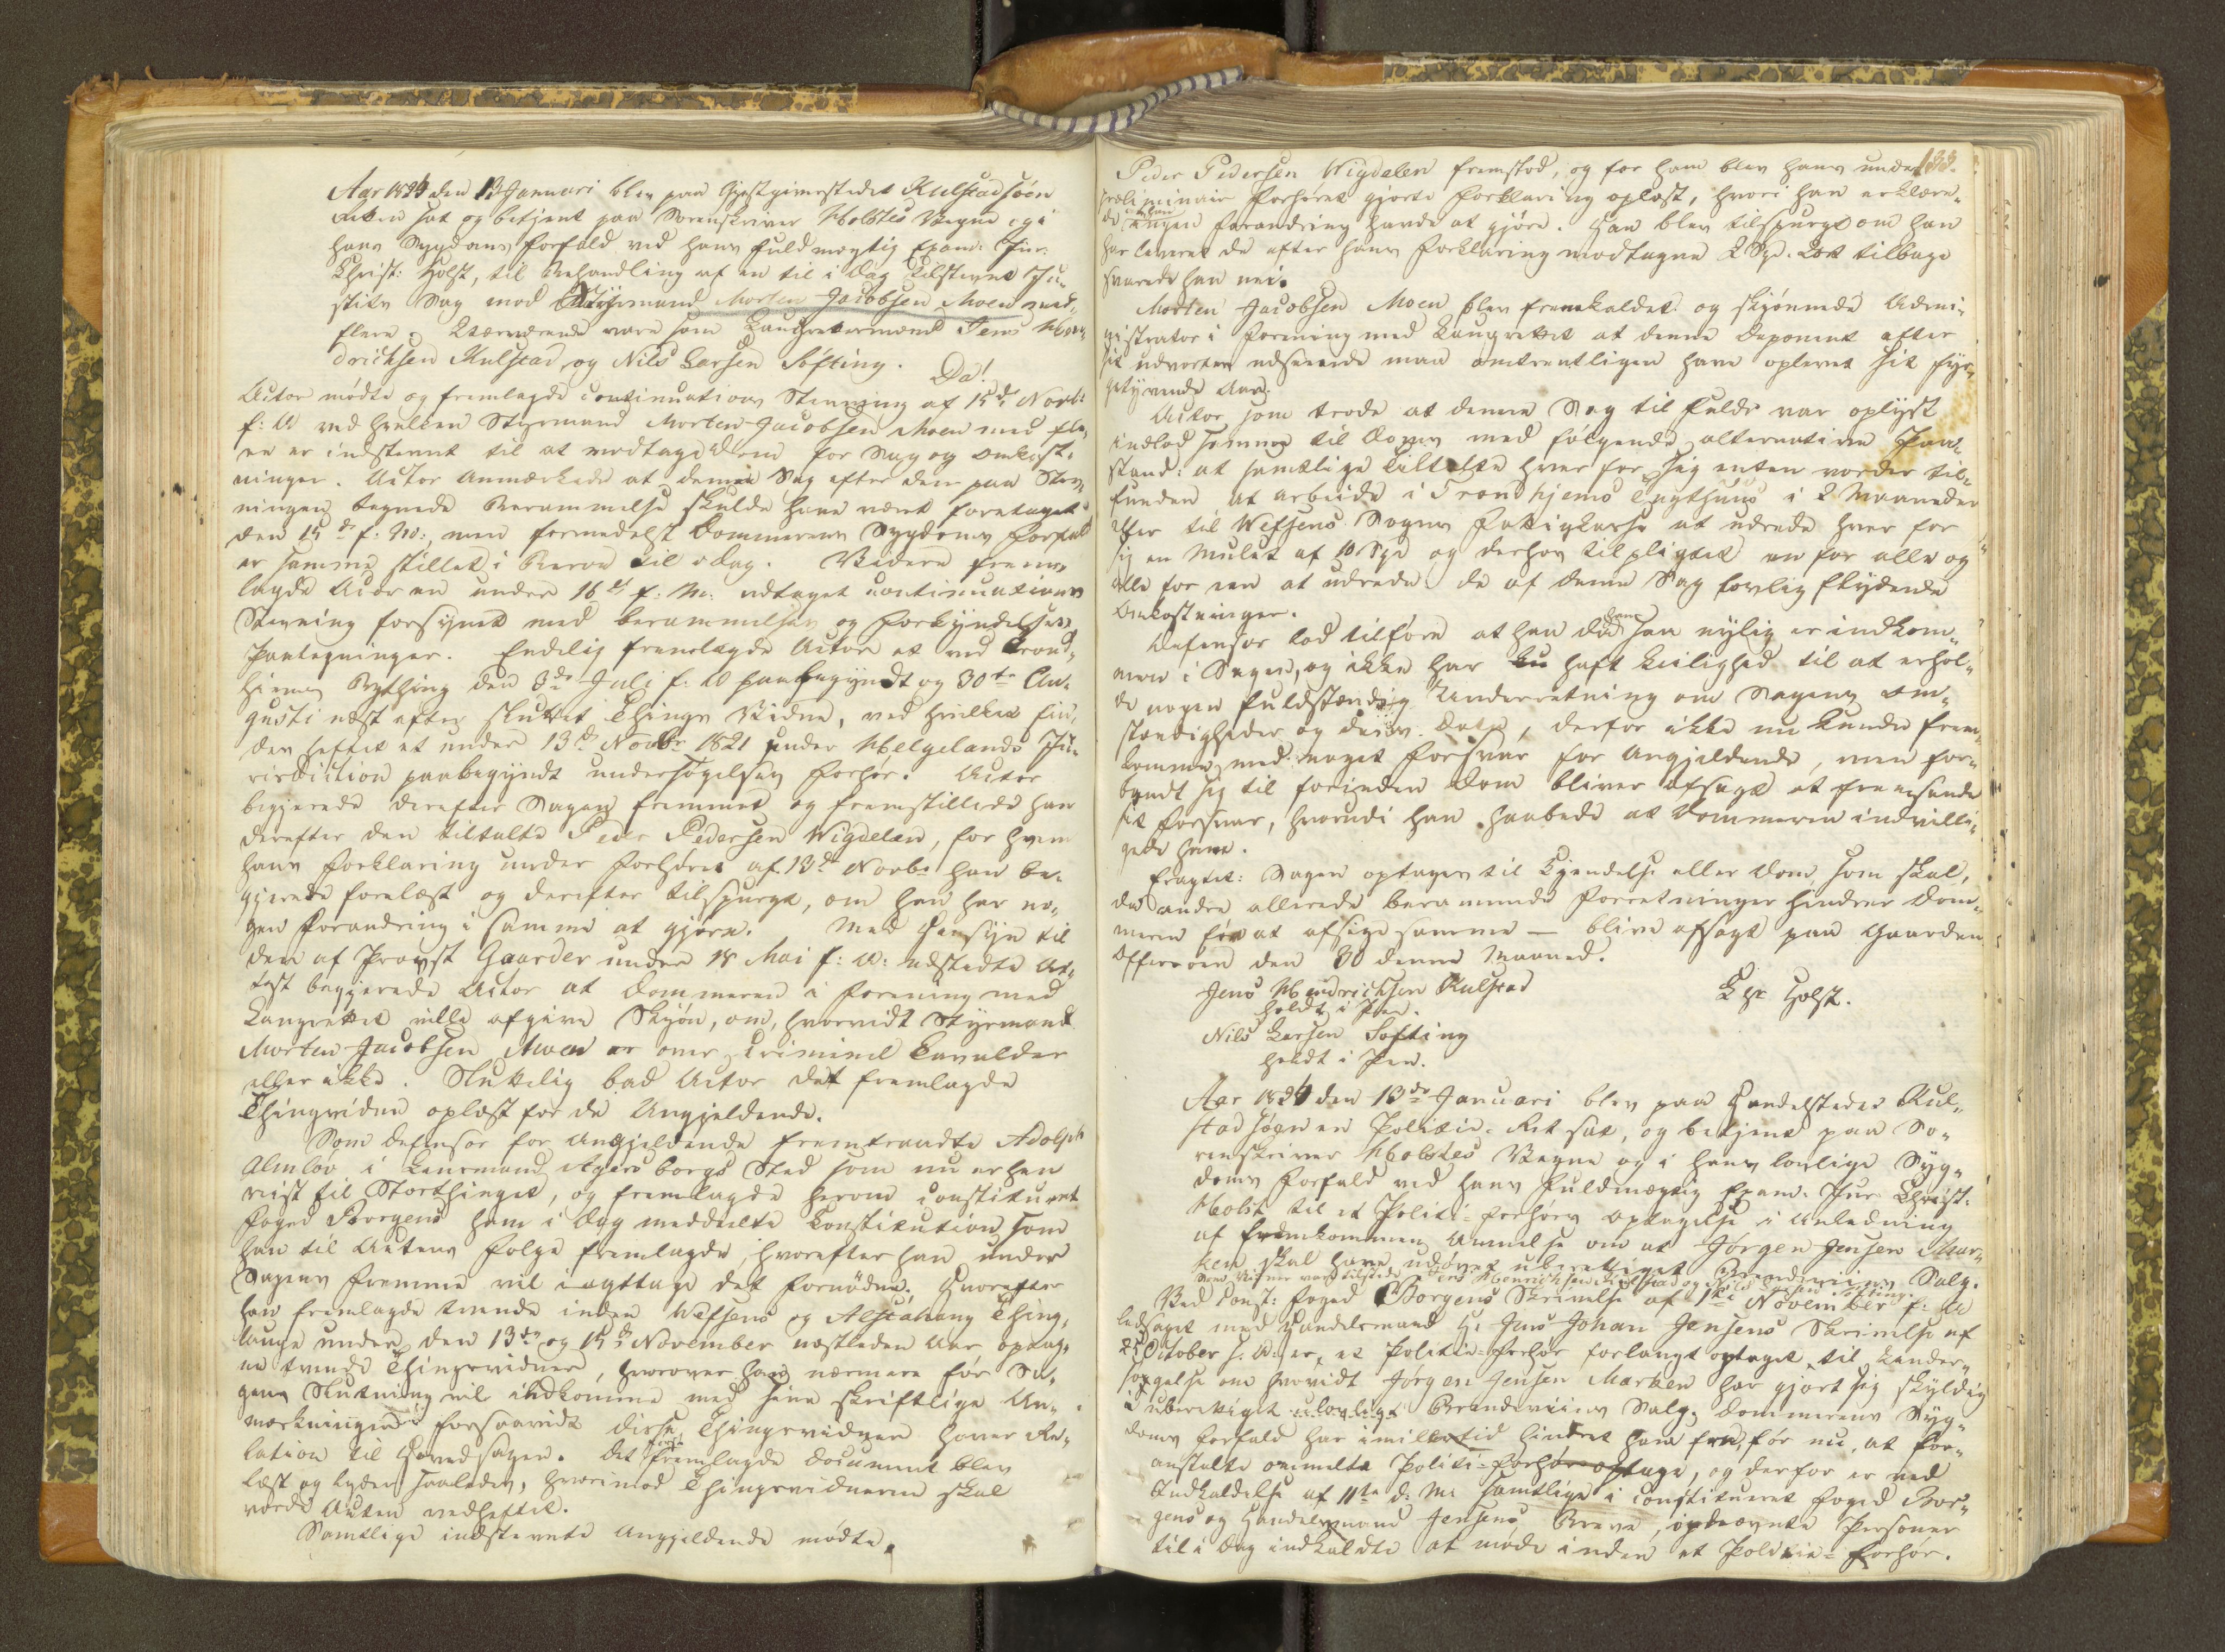 Aar 1824 den 13 Januari blev paa Gjestgiverstedet Kulstadsøen
Retten sat og betjent paa Sorenskriver Holstes Vegne og i
hans Sygdoms Forfald ved hans Fuldmægtig Exam: Jur:
Christ: Holst, til Behandling af en til i Dag indstevnt Ju-
stits Sag mod Styrmand Morten Jacobsen Moen med
flere. Overværende vare som Laugrettesmænd Jens Hen-
drichsen Kulstad og Nils Larsen Søfting.
Da!
Actor mødte og fremlagde Continuations Stevning af 15de Novbr
f: A ved hvilken Styrmand Morten Jacobsen Moen med fle-
re er indstevnt til at modtage Dom for Sag og Omkost-
ninger. Actor anmærkede at denne Sag efter den paa Stev-
ningen tegnede Berammelse skulde have været foretaget
den 15de f: M:, men formedelst Dommerens Sygdoms Forfald
er samme stillet i Beroe til i Dag. Videre frem-
lagde Actor en under 16de f: M: udtaget Continuations
Stevning forsynet med Berammelses og Forkyndelses
Paategninger. Endelig fremlagde Actor et ved Trond-
hiems Bything den 3de Juli f: A paabegyndt og 30te Au-
gusti næst efter sluttet Things Vidne, ved hvilket fin-
des heftet et under 13de Novbr 1821 under Helgelands Ju-
risdiction paabegyndt undersøgelses Forhør. Actor
begjerede derefter Sagen fremmet og fremstillede han
derefter den tiltalte Peder Pedersen Wigdelen, for hvem
hans Forklaring under Forhøret af 13de Novbr han be-
gjerede forelæst og derefter tilspurgt, om han har no-
gen Forandring i samme at gjøre. Med Hensyn til
den af Provst Gaarder under 18 Mai f: A: udstedte At-
test begjerede Actor at Dommeren i Forening med
Laugrettet ville afgive Skjøn, om, hvorvidt Styrmand
Morten Jacobsen Moen er over Criminel Lavalder
eller ikke. Sluttelig bad Actor det fremlagde
Thingsvidne oplæst for de Angjeldende.
Som Defensor for Angjeldende fremtraadte Adolph
Almløv i Lensmand Agersborgs Sted som nu er hen
reist til Storthinget, og fremlagde herom constitueret
Foged Borgens ham i Dag meddeelte Constitution som
han til Actens Følge fremlagde, hvorefter han under
Sagens Fremme vil iagttage det Fornødne. Hvorefter
han fremlagde tvende inden Wefsens og Alstahaug Thing-
lauge under den 13de og 15de November næstleden Aar optag-
ne tvende Thingsvidner, hvorover han nærmere før Sa-
gens Slutning vil indkomme med sine skriftlige An-
mærkninger forsaavidt disse Thingsvidner haver Re-
lation til Hovedsagen. Det første fremlagde Document blev
læst og lyder saaledes, hvorimod Thingsvidnerne skal
vorde Acten vedheftet.
Samtlige indstevnte Angjeldende mødte.
133.
Peder Pedersen Wigdelen fremstod, og for ham blev hans under
præliminair Forhøret gjorte Forklaring oplæst, hvori han erklære-
de at han ingen Forandring havde at gjøre. Han blev tilspurgt om han
har leveret de efter hans Forklaring modtagne 2 Spd. tilbage
svarede han nei.
Morten Jacobsen Moen blev fremkaldet og skjønnede Admi-
nistrator i Forening med Laugrettet at denne Deponent efter
sit udvortes udseende maa omtrentligen have oplevet sit fyr-
getyvende Aar.
Actor som troede at denne Sag til fulde var oplyst
indlod samme til Doms med følgende alternative Paa-
stand: at samtlige Tiltalte hver for sig enten vorder til-
funden at arbeide i Trondhjems Tugthuus i 2 Maaneder
eller til Wefsens Sogns Fattigkasse at udrede hver for
sig en Mulct af 10 Spd og derhos tilpligtet een for alle og
alle for een at udrede de af denne Sag lovlig flydende
Omkostninger.
Defensor lod tilføre at han da han saa nylig er indkom-
men i Sagen, og ikke har haft Leilighed til at erhol-
de nogen fuldstændig Underretning om Sagens Om-
stændigheder og dens Data, derfor ikke nu kunde frem-
komme med noget Forsvar for Angjeldende, men for-
bandt sig til forinden Dom bliver afsagt at fremsende
sit Forsvar, hvorudi han haabede at Dommeren indvilli-
gede ham.
Eragtet: Sagen optages til Kjendelse eller Dom som skal,
da andre allerede berammede Forretninger hindrer Dom-
meren før at afsige samme — blive afsagt paa Gaarden
Offersøen den 30 denne Maaned.
Jens Hendrichsen Kulstad
holdt i Pen.
Chr Holst.
Nils Larsen Søfting
holdt i Pen.
Aar 1824 den 13de Januari blev paa Handelstedet Kul-
stadsøen en Politie-Ret sat, og betjent paa So-
renskriver Holstes Vegne og i hans lovlige Syg-
doms Forfald ved hans Fuldmægtig Exam: Jur: Christ:
Holst til et Politi-Forhørs Optagelse i Anledning
af fremkommen Anmeldelse om at Jørgen Jensen Mar-
ken skal have udøvet uberettiget Brændeviins Salg.
Som Vidner var tilstede Jens Henrichsen Kulstad og Nils Larsen Søfting.
Ved Const: Foged Borgens Skrivelse af 1ste November f: A
ledsaget med Handelsmand H: Jens Johan Jensens Skrivelse af
25 October f: A: er et Politie-Forhør forlangt optaget til Under-
søgelse om hvorvidt Jørgen Jensen Marken har gjort sig skyldig
i uberettiget ulovligt Brændeviins Salg. Dommerens Syg-
doms Forfald har imidlertid hindret ham fra, før nu, at for-
anstalte ommeldte Politi-Forhør optage, og derfor er ved
Indkaldelse af 11te d: M: samtlige i constitueret Foged Bor-
gens og Handelsmand Jensens Breve, opnævnte Personer
til i Dag indkaldte at møde inden et Politie-Forhør.